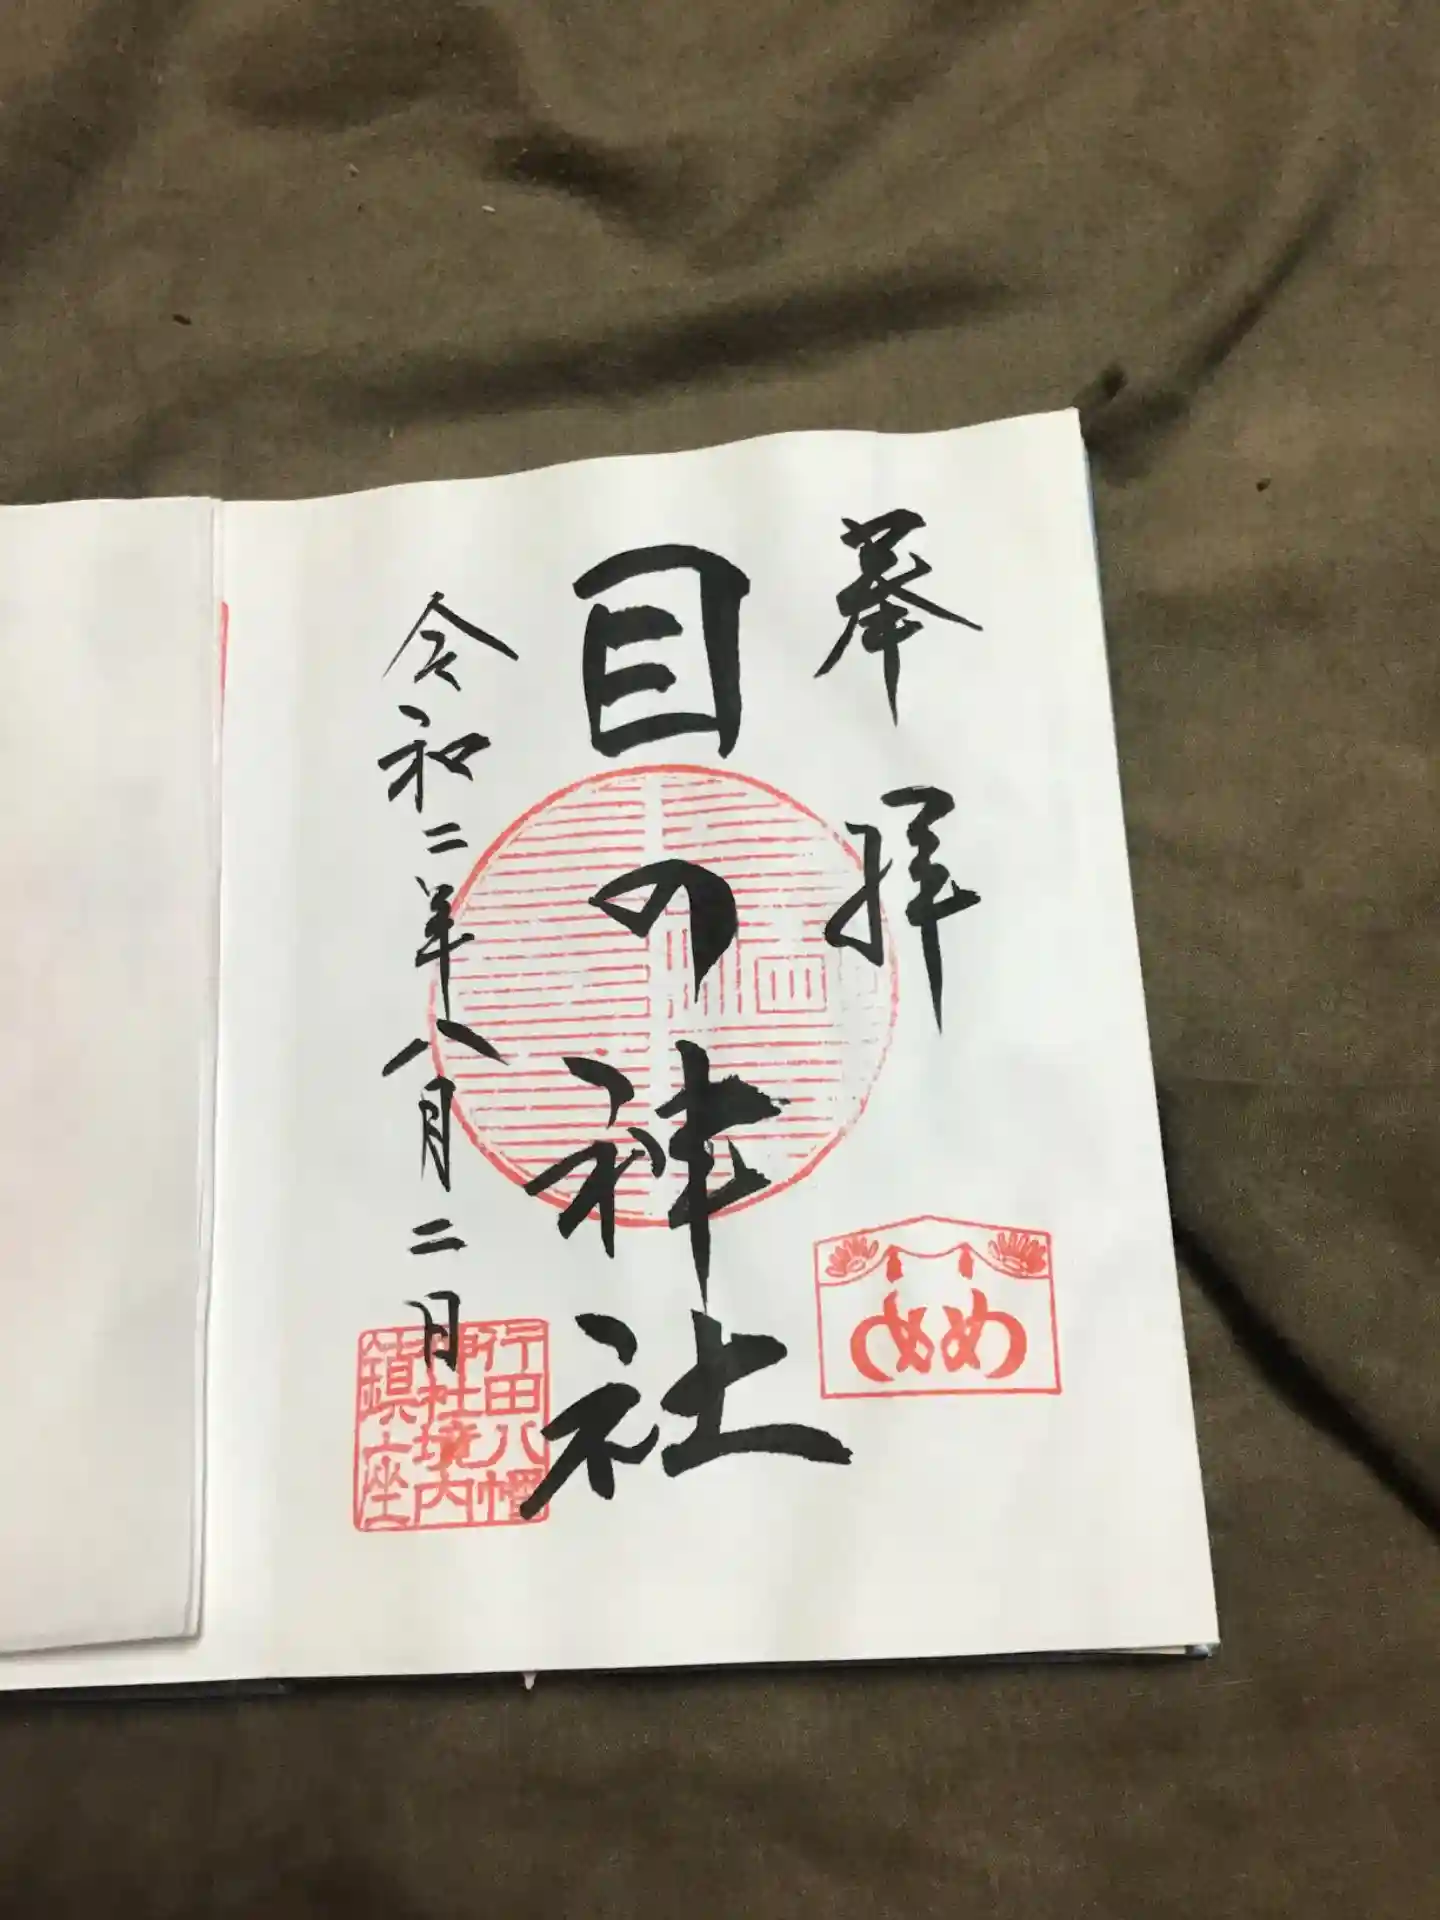 奉拝
目の神社
令和二年八月二日
めめ
行田八幡
神社境内
鎮座